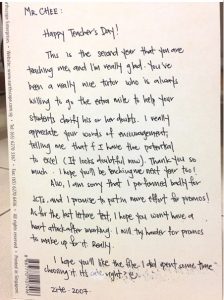 MR. CHEE:
Happy Teacher's Day!
This is the second year that you are
teaching me, and I'm really glad. You've
been a really nice tutor who is always
willing to go the extra mile to help your
students clarify his or her doubts. I really
appreciate your words of encouragement;
telling me that I have the potential
to excel (It looks doubtful now). Thank you so
much. I hope you'll be teaching me next year too!
Also, I am sorry that I performed badly for
and I promise to put in more effort for promos!
As for the last lecture test, I hope you won't have a
heart attack after marking. I will try harder for promos
to make up for it. Really.
I hope you'll like the file. I did spent some time
choosing it. It's cute right?
2007